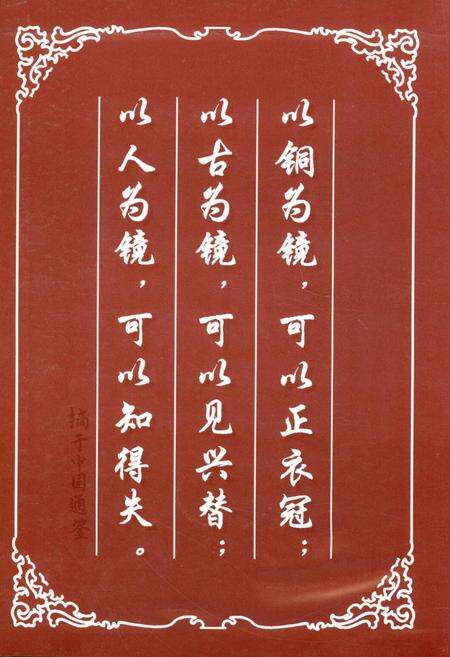 以铜为镜，可以正衣冠；
以古为镜，可以见兴替；
以人为镜，可以知得失。
摘于中国通鉴